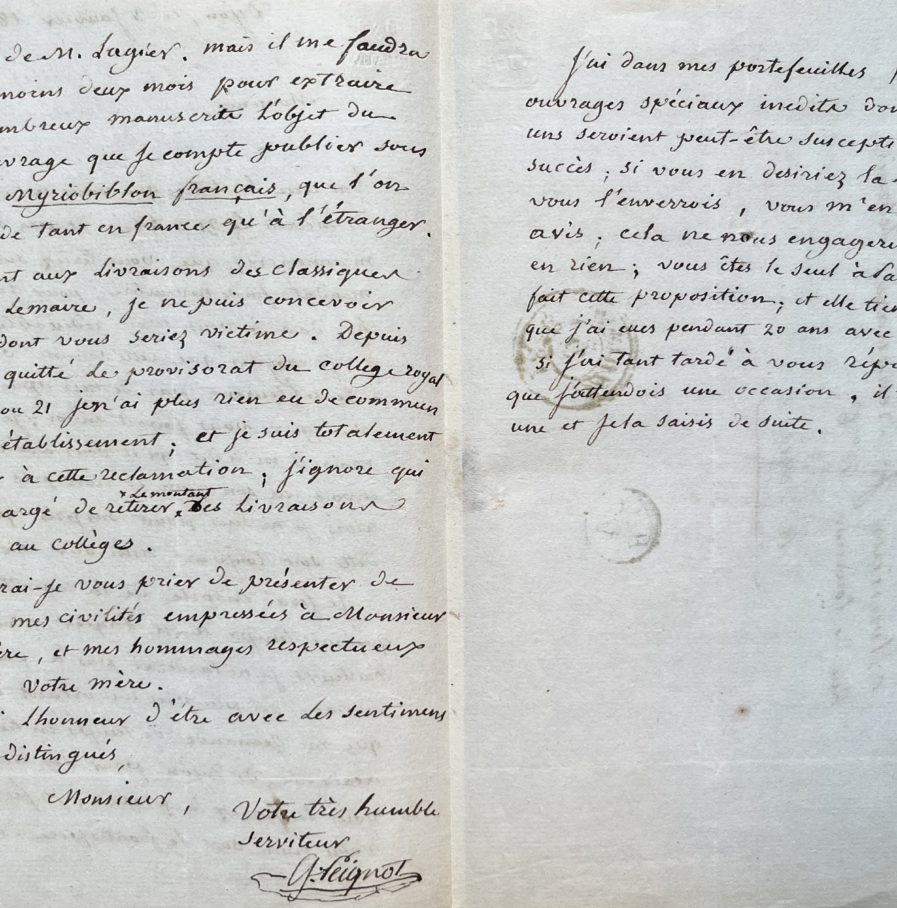 de M. Lagier. mais il me faudra
moins deux mois pour extraire
mbreux manuscrits l'objet du
vrage que je compte publier sous
Myriobiblon français, que l'on
de tant en france qu'à l'étranger.
nt aux Livraisons des classiques
Lemaire, je ne puis concevoir
dont vous seriez victime. Depuis
quitté le provisorat du college royal
ou 21 je n'ai plus rien eu de commun
établissement; et je suis totalement
à cette reclamation; j'ignore qui
argé de retirer × Le montant × des Livraisons
au collèges.
rai-je vous prier de présenter de
mes civilités empressées à Monsieur
ère, et mes hommages respectueux
votre mère.
i Lhonneur d'être avec des sentimens
distingués,
Monsieur,
Votre très humble
serviteur
G. Peignot
J'ai dans mes portefeuilles p
ouvrages spéciaux inedits don
uns seroient peut-être suscepti
succès; si vous en desiriez la
vous l'enverrois, vous m'en
avis; cela ne nous engagere
en rien; vous êtes le seul à Pa
fait cette proposition; et elle tien
que j'ai eues pendant 20 ans avec
si j'ai tant tardé à vous répo
que j'attendois une occasion, il
une et je la saisis de suite.